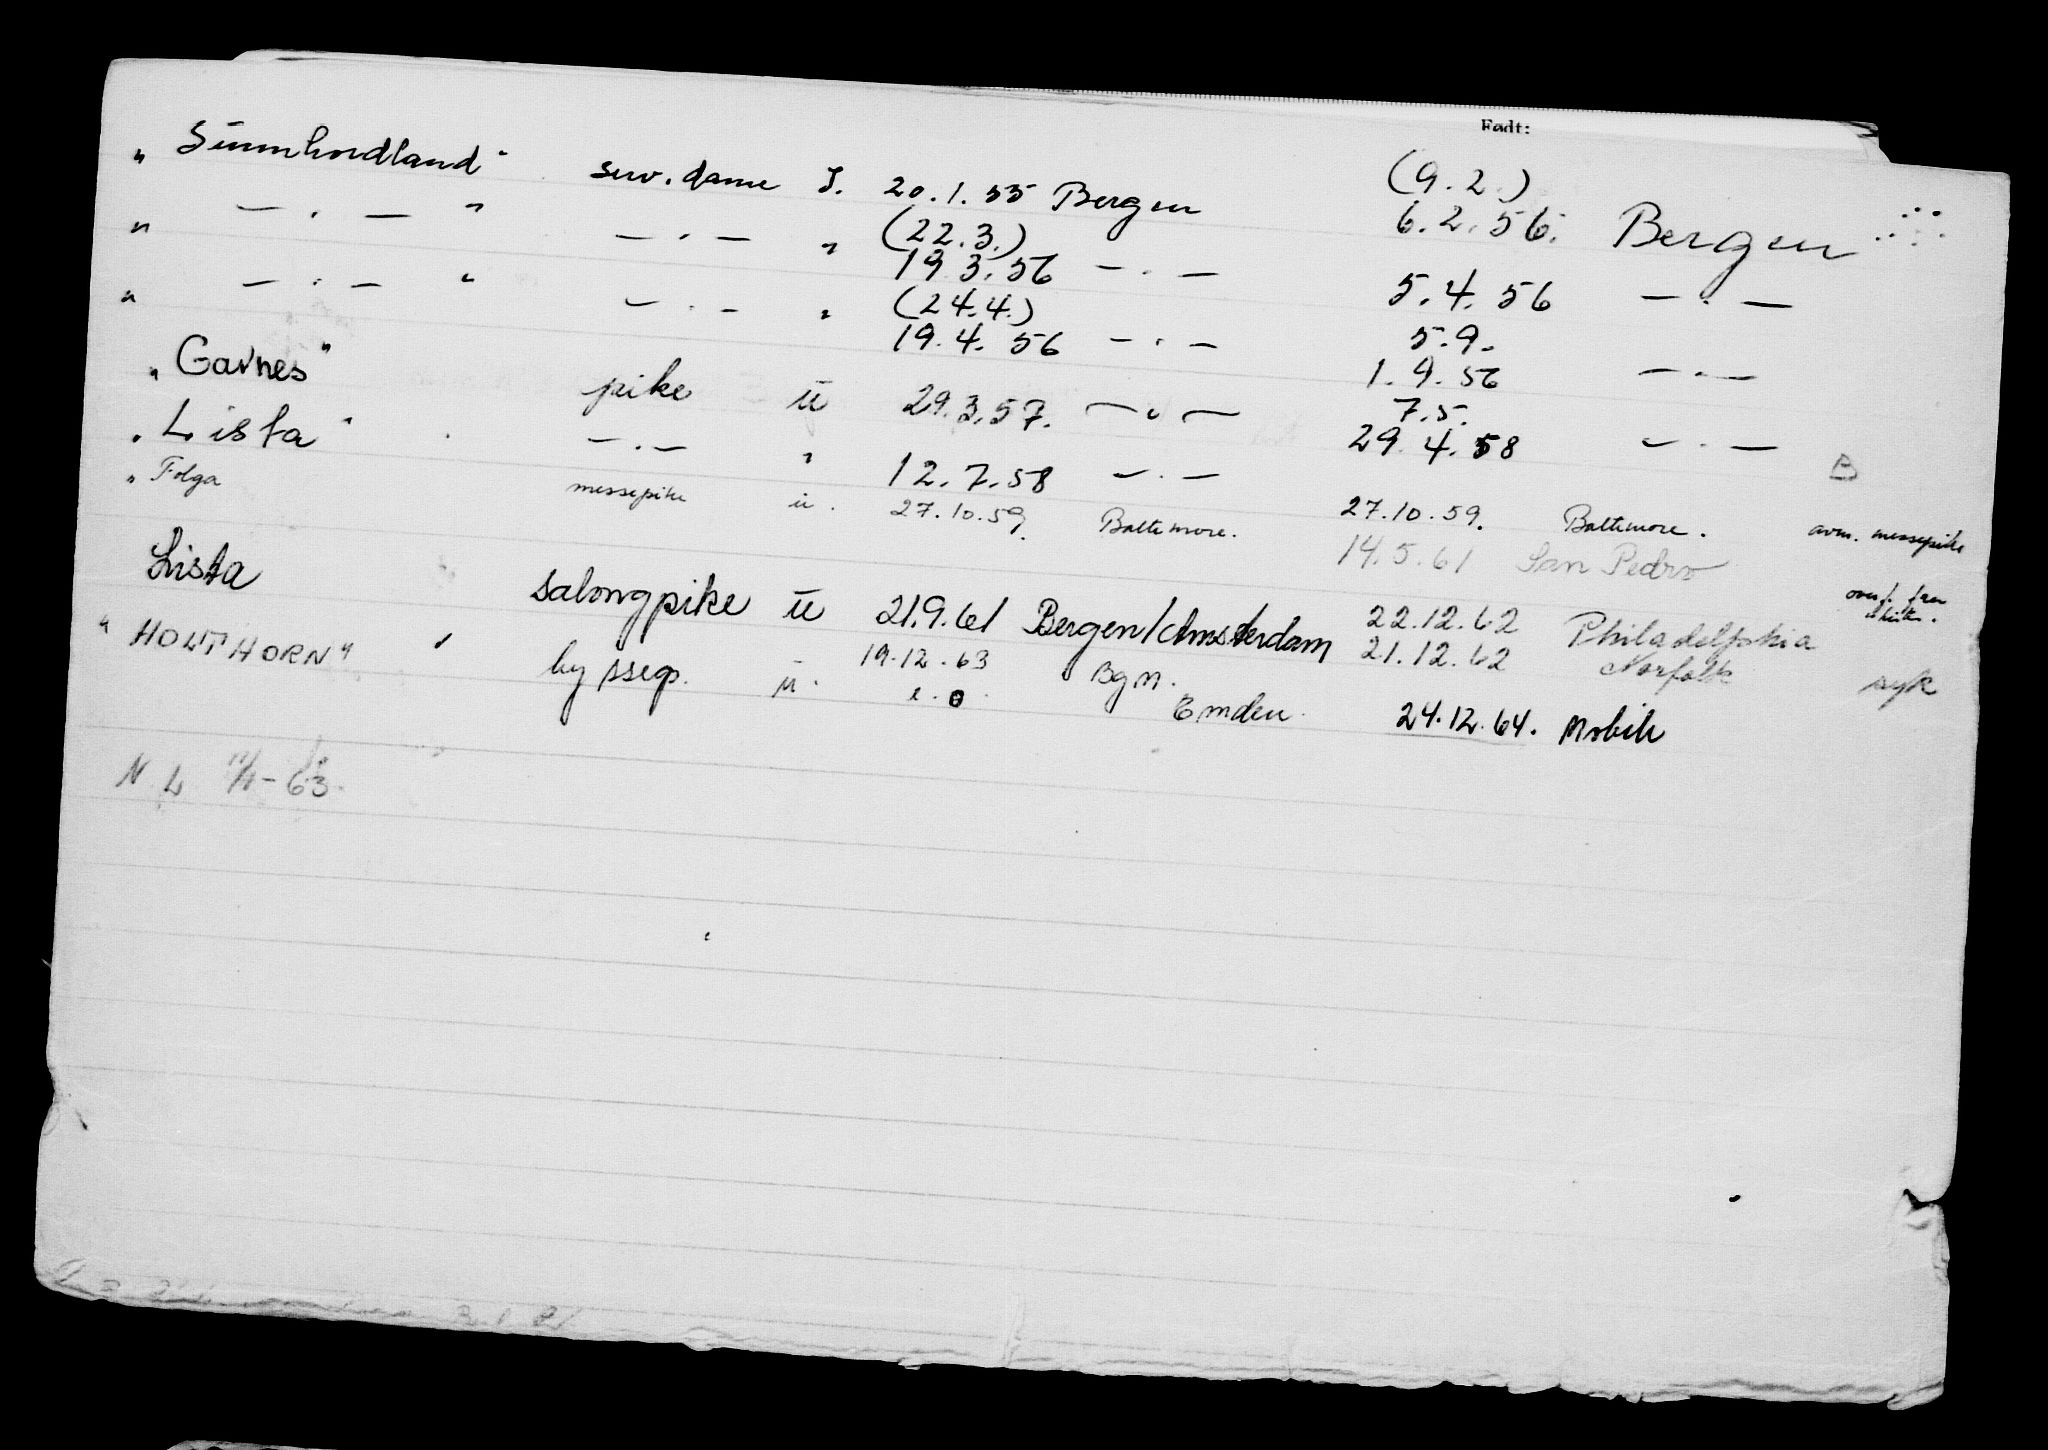 Født:
(9.2.)
"Sunnhordland" serv. dame I. 20.1.55 Bergen 6.2.56. Bergen
(22.3.)
" — . — " — . — " 19.3.56 — . — 5.4.56 — . —
(24.4.) 5.9.
" — . — " — . — " 19.4.56 — . — 1.9.56 — . —
7.5.
"Garnes" pike U 29.3.57. — " — 29.4.58 — . —
"Lista" — . — " 12.7.58 — . — 27.10.59. Baltimore. avm. messepike
"Folga messepike U. 27.10.59. Baltimore. 14.5.61 San Pedro
22.12.62 Philadelphia
Lista salongpike U 21.9.61 Bergen/Amsterdam 21.12.62 Norfolk syk
"HOLTHORN" byssep. U. 19.12.63 Bgn.
Emden. 24.12.64. Mobile
N.L. -63.